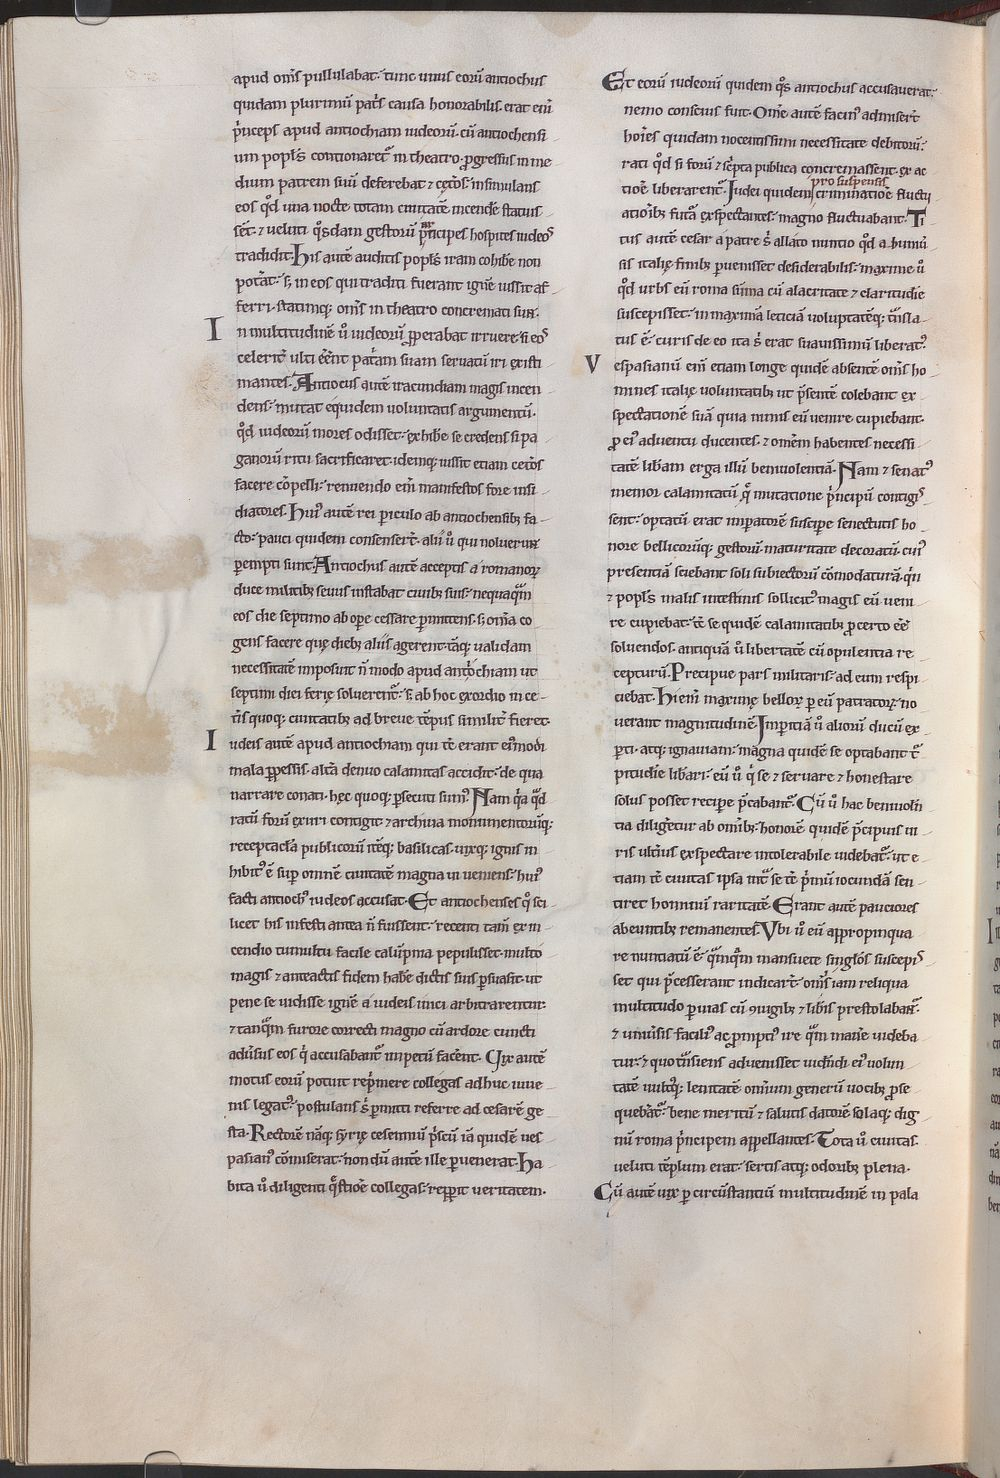 apud om̅s pullulabat: tunc unus eorū antiochus
quidam plurimū pat̅s causa honorabilis. erat em̅
p̅nceps apud antiochiam iudeorū. cū antiochensi
um popl̅s contionaret᷑ in theatro. ꝓgressus in me
dium patrem suū deferebat ⁊ cet̅os. insimulans
eos qd̅ una nocte totam ciuitatē incende̅ statuis
sent̅. ⁊ veluti qo̅sdam gestorū participes hospites iudeos
tradidit. His autē auditis popl̅s iram cohibe̅ non
potat̅. s; in eos qui traditi fuerant ignē iussit af
ferri. statimq; om̅s in theatro concremati sunt.
In multitudinē ů iudeorū ꝓperabat irruere. si eos
celerit̅ ulti ee̅nt pat̅am suam seruatū iri existi
mantes. Antiocus autē iracundiam magis incen
dens. mutat equidem voluntatis argumentū.
qd̅ iudeorū mores odisset. exhibe̅ se credens si pa
ganorū ritu sacrificaret. idemq; iussit etiam cet̅os
facere cōpelli. rennuendo em̅ manifestos fore insi
diatores. Hui᷒ autē rei ꝑiculo ab antiochensib; fa
cto. pauci quidem consenser̅t. alii ů qui noluerunt
ꝑempti sunt. Antiochus autē acceptis a romanoꝝ
duce militib; seuus instabat ciuib; suis. nequaqͣm
eos die septimo ab oꝑe cessare ꝑmittens. s; om̅ia co
gens facere quę dieb; aliis agerent. tāq; validam
necessitatē imposuit n̅ modo apud antiochiam ut
septimi diei ferię soluerent᷑. s; ab hoc exordio in ce
t̅is quoq; ciuitatib; ad breue tēpus similit̅ fieret.
Iudeis autē apud antiochiam qui tc̅ erant ei᷒modi
mala ꝑpessis. alt̅a denuo calamitas accidit. de qua
narrare conati. hęc quoq; ꝑsecuti sum᷒. Nam qa̅ qd̅
ratū forū exuri contigit ⁊ archiua monumentorūq;
receptacl̅a publicorū it̅eq; basilicas. uixq; ignis in
hibit᷒ ē suꝑ omnē ciuitatē magna ui ueniens. hui᷒
facti antioch᷒ iudeos accusat. Et antiochenses qͦ sci
licet his infesti antea n̅ fuissent. recenti tam̅ ex in
cendio tumultu facile calūpnia pepulisset. multo
magis ⁊ anteactis fidem habe̅ dictis suis ꝑsuasit. ut
pene se uidisse ignē a iudeis iniici arbitrarentur.
⁊ tanqͣm furore correcti magno cū ardore cuncti
adu̅sus eos qi̅ accusabant᷑ impetū facēnt. Vix autē
motus eorū potuit rep̅mere collegas adhuc iuue
nis legat᷒. postulans s̅ ꝑmitti referre ad cesarē ge
sta. Rectorē nāq; syrię cesenniū p̅scū iā quidē ues
pasian᷒ cōmiserat. non dū autē ille ꝑuenerat. Ha
bita ů diligenti qͦstioē collegas. repꝑit veritatem.
Et eorū iudeorū quidem qo̅s antiochus accusauerat.
nemo conscius fuit. Om̅e autē facin᷒ admiser̅t
ho̅ies quidam nocentissimi necessitate debitorū.
rati qd̅ si forū ⁊ sc̅pta publica concremassent. ex ac
tiōe liberarent᷑. Iudei quidem pro suspensis criminatiōe fluctu
atioīb; futa̅ exspectantes. magno fluctuabant. Ti
tus autē cesar a patre s̅ allato nuntio qd̅ a bunuū
sis italię finib; ꝑuenisset desiderabilis. maxime ů
qd̅ urbs eū roma sūma cū alacritate ⁊ claritudie
suscepisset. in maximā leticiā voluptatēq; tn̅sla
tus ē. curis de eo ita s̅ erat suauissimū liberat᷒.
Vespasianū em̅ etiam longe quidē absentē om̅s ho
mines italię voluntatib; ut p̅sentē colebant ex
spectationē suā quia nimis eū uenire cupiebant.
ꝓ ei᷒ aduentu ducentes. ⁊ omēm habentes necessi
tatē libam̅ erga illū beniuolentiā. Nam ⁊ senat᷒
memor calamitatū qͥ mutatione p̅ncipū contigis
sent. optatū erat imꝑatorē suscipe̅ senectutis ho
nore bellicorūq; gestorū maturitate decoratū. cui᷒
presentiā sciebant soli subiectorū cōmodaturā. qn̅
⁊ popl̅s malis intestinis sollicit᷒ magis eū ueni
re cupiebat. tc̅ se quidē calamitatib; ꝓ certo ee̅
soluendos. antiquā ů libertatē cū opulentia re
cepturū. Precipue pars militaris ad eum respi
ciebat. Hiem̅ maximę belloꝝ ꝑ eū patratoꝝ no
uerant magnitudinē. Imꝑitiā ů aliorū ducū ex
ꝑti. atq; ignauiam. magna quidē se optabant t᷑
pitudie libari̅. eū ů qͥ se ⁊ seruare ⁊ honestare
solus posset recipe̅ p̅cabant᷑. Cū ů hac beniuoln̅
tia dilige̅tur ab omīb;. honorē quidē p̅cipuis ui
ris ultius̅ exspectare intolerabile uidebat᷑. ut e
tiam tc̅ ciuitas ipsa int̅ se tc̅ p̅mū iocundā sen
tiret hominū raritatē. Erant autē pauciores
abeuntib; remanentes. Vbi ů eū appropinqua
re nuntiatū ē. qͣmqͣm mansuete singlo̅s suscepis
set qui p̅cesserant indicar̅t. om̅s iam reliqua
multitudo ꝑ uias cū ꝯiugib; ⁊ lib̅is prestolabat᷑.
⁊ uniu̅sis facili᷒ ac ꝓmpti᷒ ire qͣm mane̅ uideba
tur. ⁊ quot̅nsiens aduenisset uidn̅di ei᷒ volun
tatē uultq; lenitatē omnium generū uocib; ꝓse
quebāt᷑. bene meritū ⁊ salutis datorē solaq; dig
nū roma p̅ncipem appellantes. Tota ů ciuitas
ueluti tēplum erat. sertis atq; odorib; plena.
Cū autē vix ꝑ circūstantiū multitudinē in pala